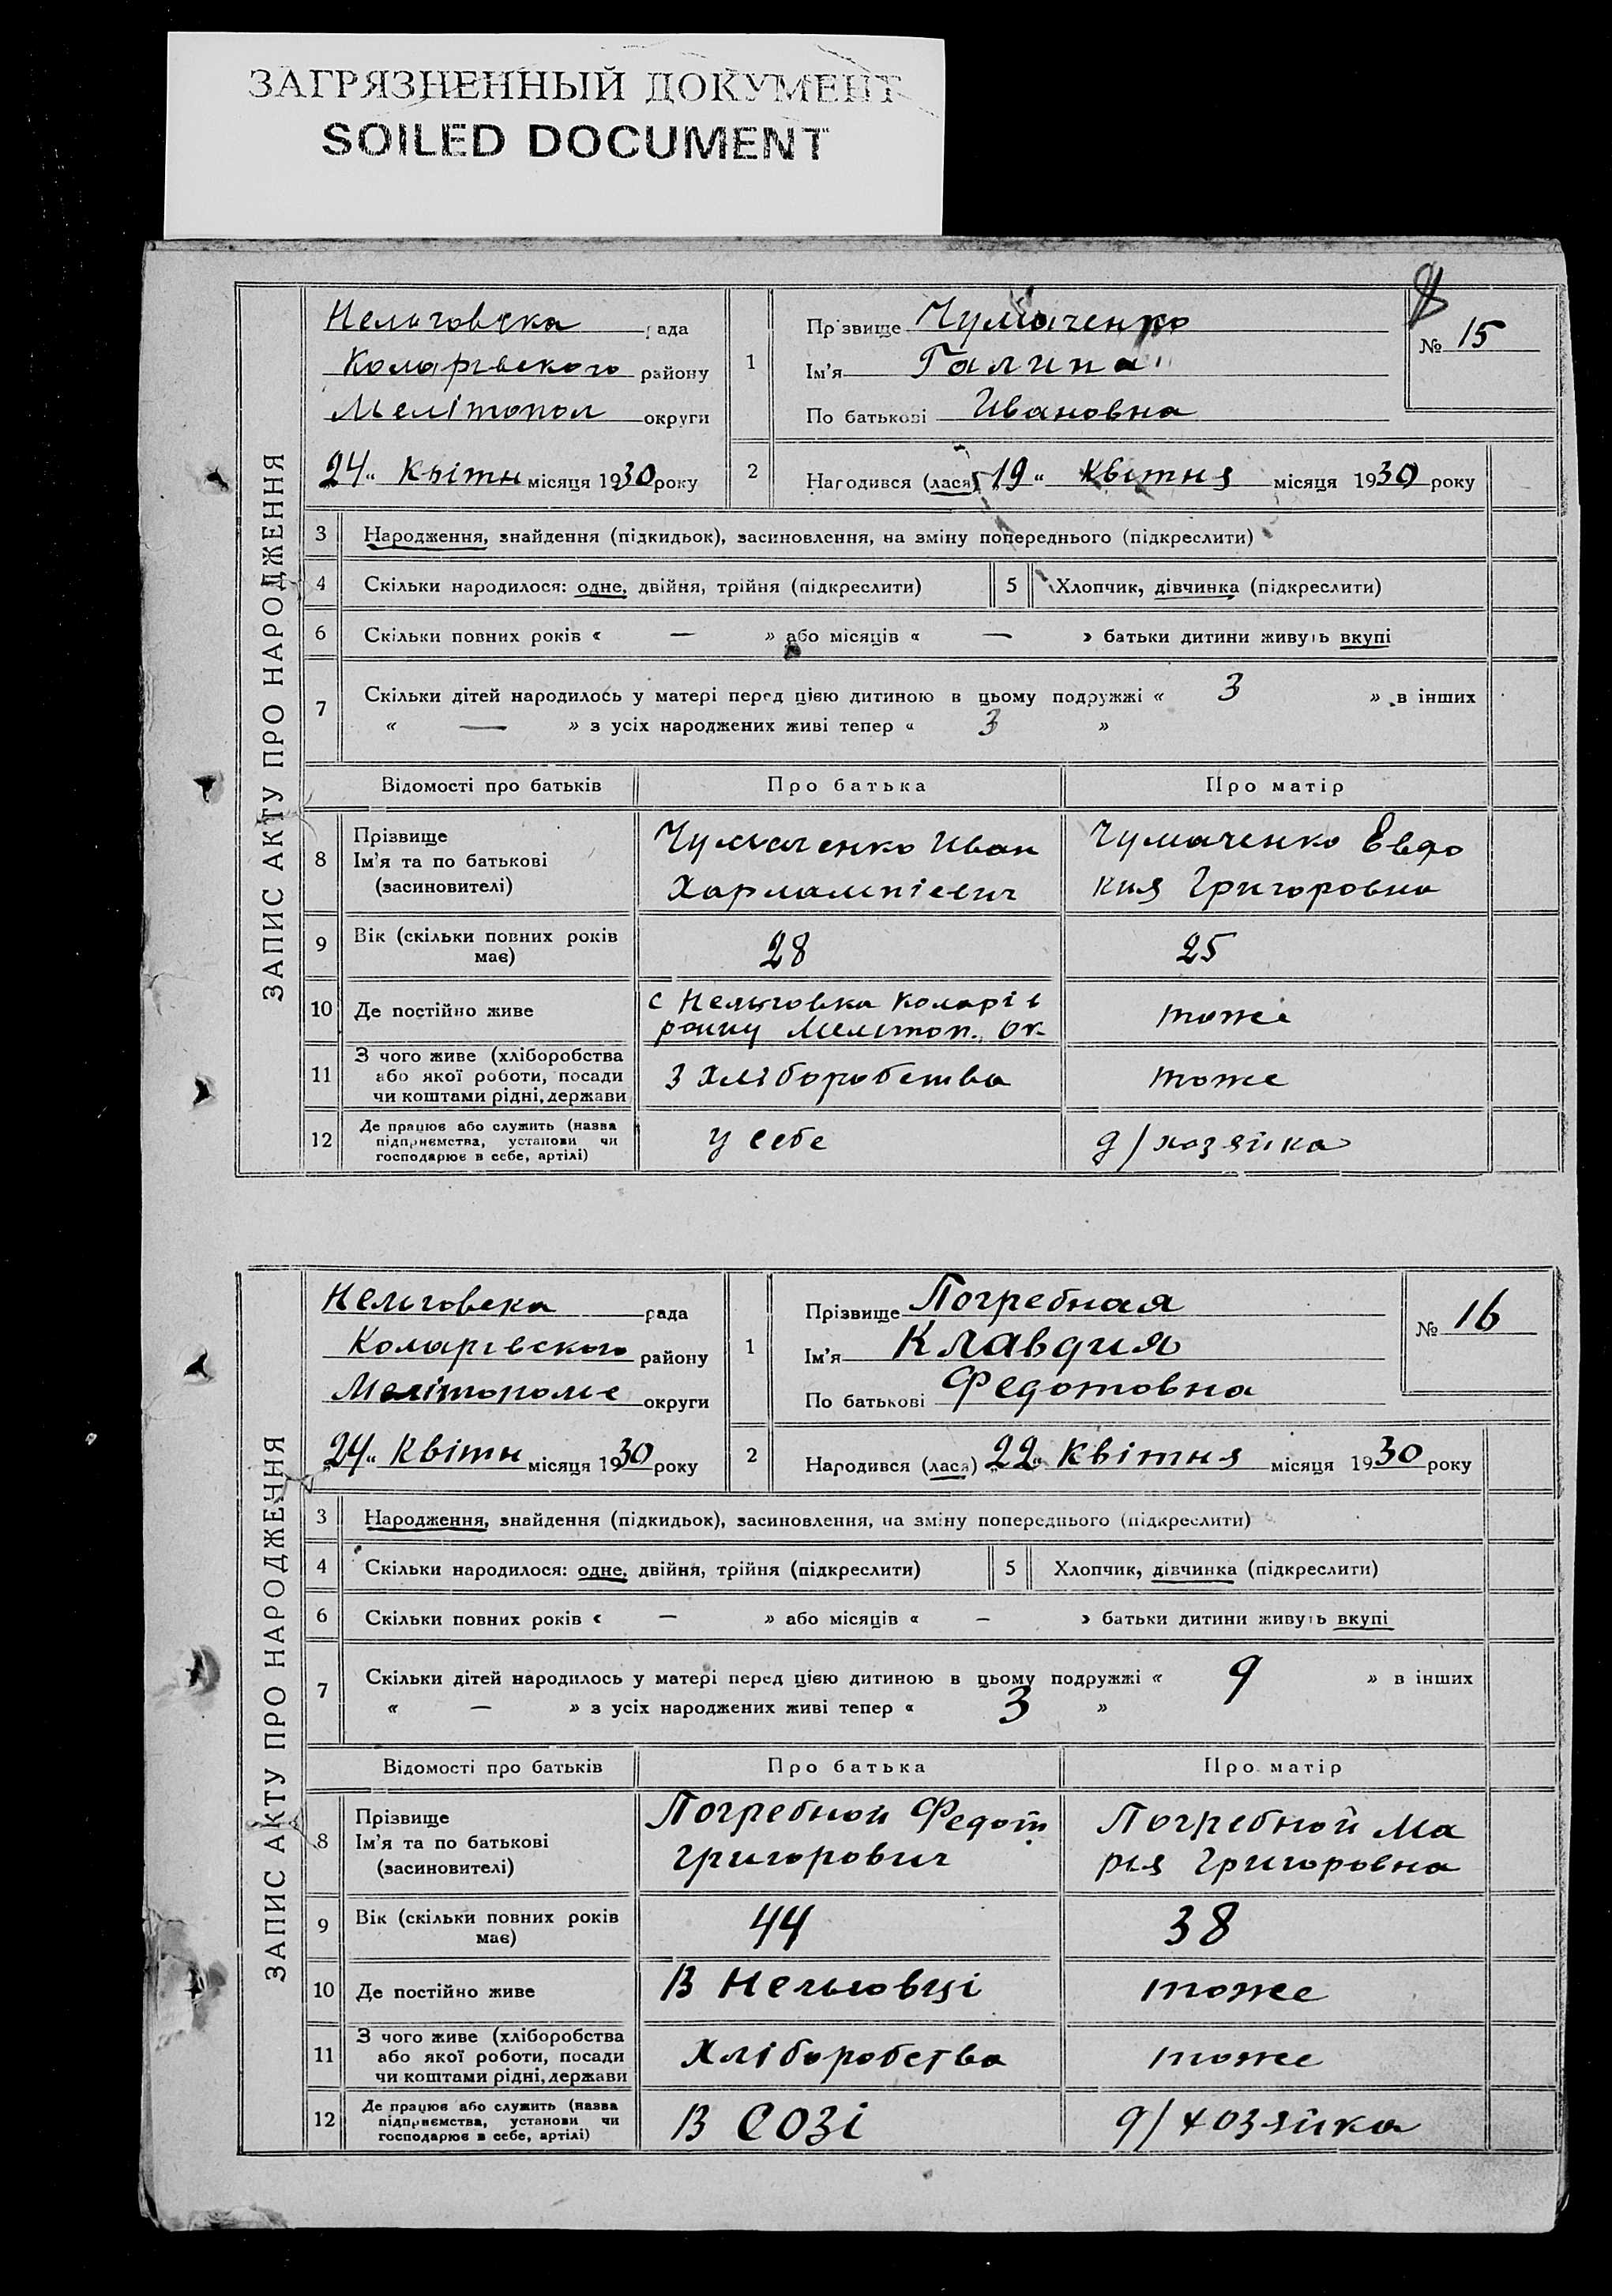 ЗАГРЯЗНЕННЫЙ ДОКУМЕНТ
SOILED DOCUMENT
ЗАПИС АКТУ ПРО НАРОДЖЕННЯ
Нельговска рада
Коларівского району
Мелітопол округи
24 „ Квітн місяця 1930 року
1
Прізвище Чумаченко
Ім'я Галина
По батькові Ивановна
8
№ 15
2
Народився (лася) „ 19 “ Квітня місяця 1930 року
3 Народження, знайдення (підкидьок), засиновлення, на зміну попереднього (підкреслити)
4 Скільки народилося: одне, двійня, трійня (підкреслити) 5 Хлопчик, дівчинка (підкреслити)
6 Скільки повних років « — » або місяців « — » батьки дитини живуть вкупі
7 Скільки дітей народилось у матері перед цією дитиною в цьому подружжі « 3 » в інших
« — » з усіх народжених живі тепер « 3 »
Відомості про батьків Про батька Про матір
8 Прізвище
Ім'я та по батькові
(засиновителі)
Чумаченко Иван
Харлампієвич
Чумаченко Евдо
кия Григоровна
9 Вік (скільки повних років
має)
28
25
10 Де постійно живе
с Нельговка Коларів
роину Мелітоп. Ок.
тоже
11 З чого живе (хліборобства
або якої роботи, посади
чи коштами рідні, держави
З Хліборобства
тоже
12 Де працює або служить (назва
підприємства, установи чи
господарює в себе, артілі)
у себе
д/хозяйка
ЗАПИС АКТУ ПРО НАРОДЖЕННЯ
Нельговска рада
Коларівского району
округи
„24“ Квітн місяця 1930 року
1
Прізвище Погребная
Ім'я Клавдия
По батькові Федотовна
№ 16
2
Народився (лася) „22“ Квітня місяця 1930 року
3 Народження, знайдення (підкидьок), засиновлення, на зміну попереднього (підкреслити)
4 Скільки народилося: одне, двійня, трійня (підкреслити) 5 Хлопчик, дівчинка (підкреслити)
6 Скільки повних років « — » або місяців « — » батьки дитини живуть вкупі
7 Скільки дітей народилось у матері перед цією дитиною в цьому подружжі « 9 » в інших
« — » з усіх народжених живі тепер « 3 »
Відомості про батьків Про батька Про матір
8 Прізвище
Ім'я та по батькові
(засиновителі)
Погребной Федот
Григорович
Погребной Ма
рия Григоровна
9 Вік (скільки повних років
має)
44
38
10 Де постійно живе
В Нельговці
тоже
11 З чого живе (хліборобства
або якої роботи, посади
чи коштами рідні, держави
Хліборобства
тоже
12 Де працює або служить (назва
підприємства, установи чи
господарює в себе, артілі)
В Созі
д/хозяйка